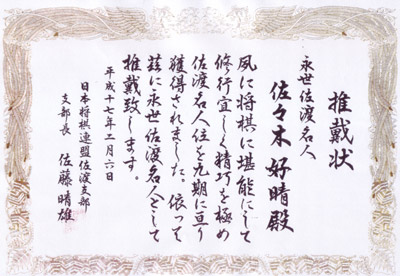 推戴状
永世佐渡名人
佐々木好晴殿
夙に将棋に堪能にして
修行宜しく精巧を極め
佐渡名人位を九期に亘り
獲得されました、依って
茲に永世佐渡名人として
推戴致します。
平成十六年二月六日
日本将棋連盟佐渡支部
支部長 佐藤晴雄